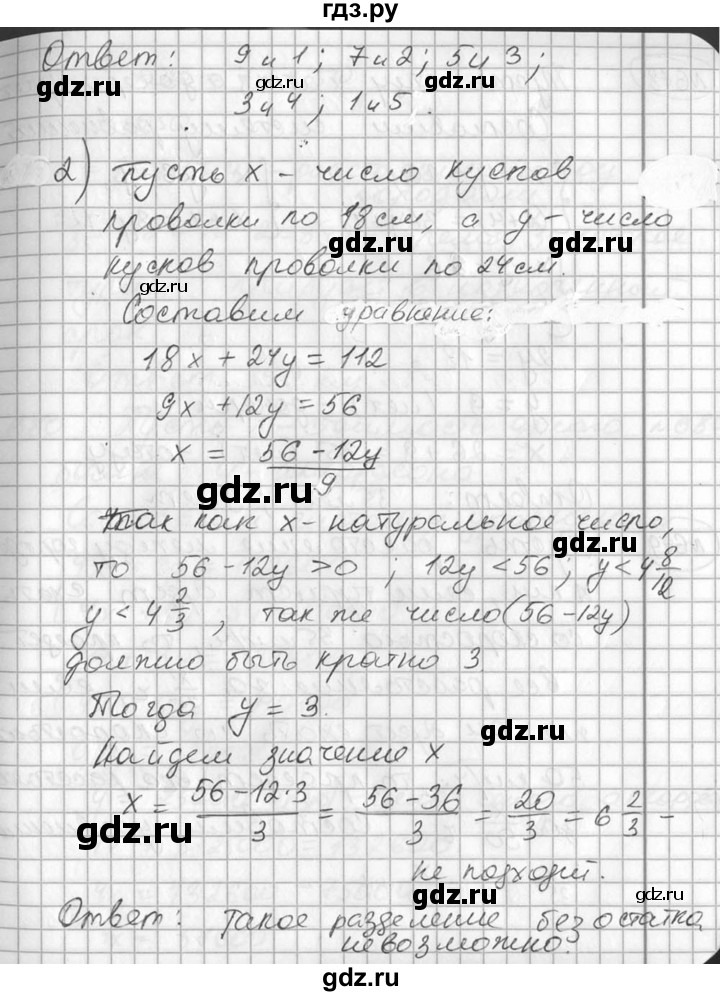 гдз.ру
Ответ: 9 и 1; 7 и 2; 5 и 3;
gdz.ru gdz.ru
3 и 4; 1 и 5.
gdz.ru
2) пусть x - число кусков
проволки по 18 см, а y - число
gdz.ru gdz.ru
кусков проволки по 24 см.
gdz.ru gdz.ru
Составим уравнение:
18x + 24y = 112
9x + 12y = 56
x = 56 - 12y / 9
gdz.ru gdz.ru
так как x - натуральное число,
gdz.ru
то 56 - 12y > 0; 12y < 56; y < 4 8/12
y < 4 2/3, так же число (56 - 12y)
должно быть кратно 3
Тогда y = 3.
gdz.ru
Найдем значение x
x = 56 - 12·3 / 3 = 56 - 36 / 3 = 20/3 = 6 2/3 -
gdz.ru gdz.ru
не подходит.
gdz.ru gdz.ru
Ответ: такое разделение без остатка
невозможно.
gdz.ru gdz.ru
gdz.ru